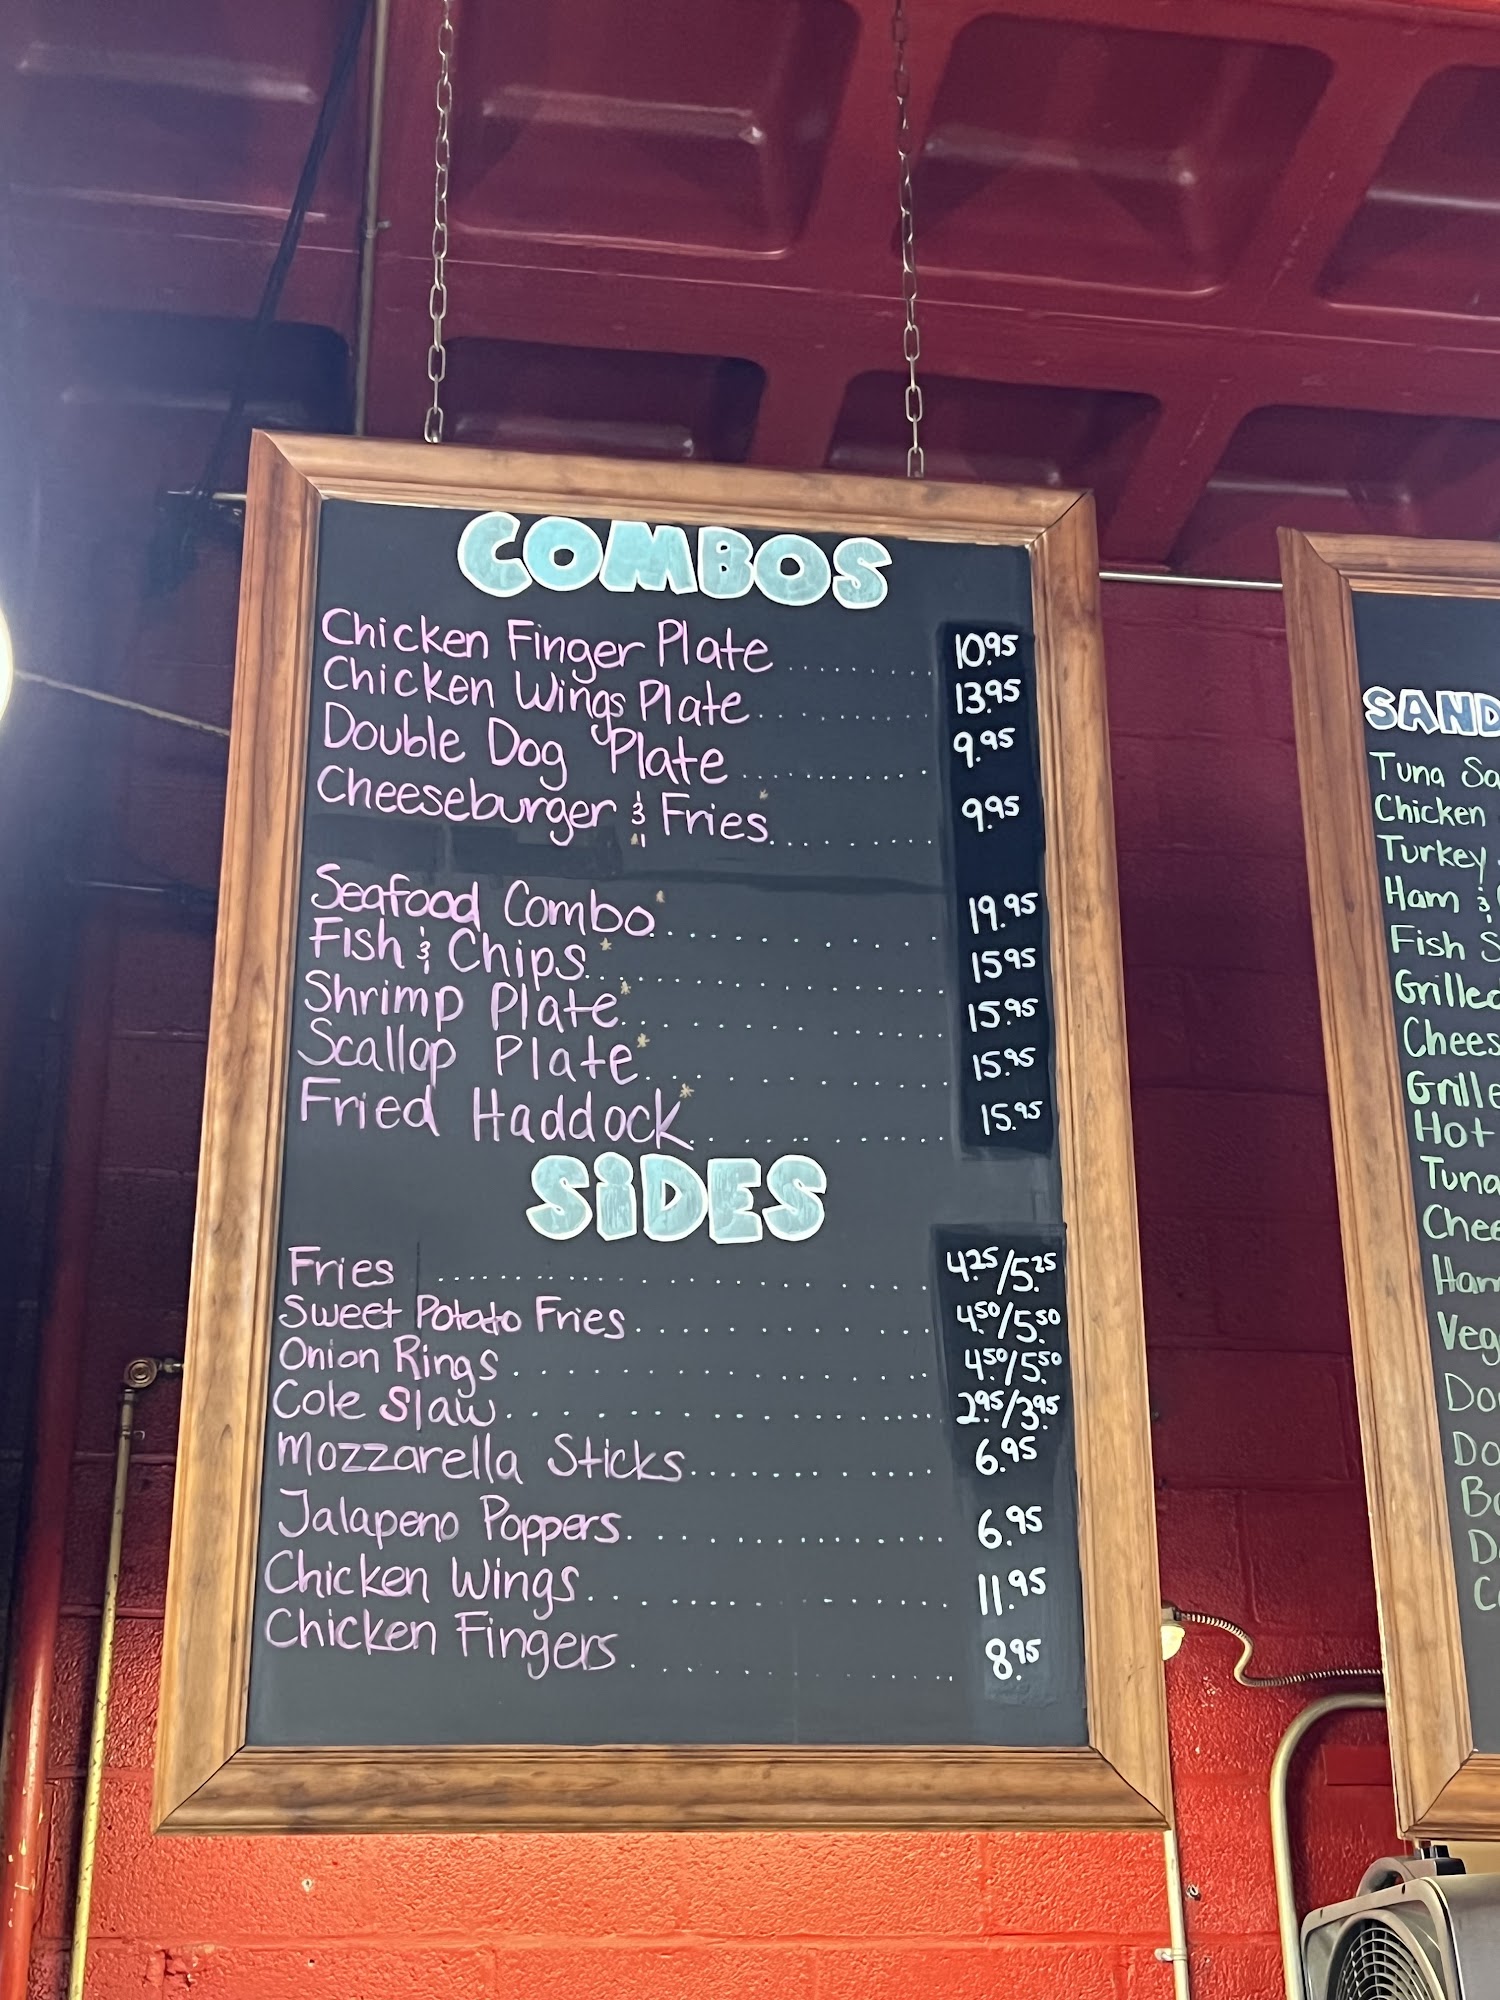 COMBOS
Chicken Finger Plate ........ 10.95
Chicken Wings Plate ......... 13.95
Double Dog Plate ........... 9.95
Cheeseburger & Fries* ......... 9.95
Seafood Combo* ........... 19.95
Fish & Chips* ............ 15.95
Shrimp Plate* ............ 15.95
Scallop Plate* ............ 15.95
Fried Haddock* .......... 15.95
SiDES
Fries .................. 4.25/5.25
Sweet Potato Fries ............ 4.50/5.50
Onion Rings ................ 4.50/5.50
Cole Slaw ................ 2.95/3.95
Mozzarella Sticks ........... 6.95
Jalapeno Poppers ............. 6.95
Chicken Wings .............. 11.95
Chicken Fingers ............. 8.95
SAND
Tuna Sa
Chicken
Turkey
Ham &
Fish S
Grilled
Chees
Grille
Hot
Tuna
Chee
Ham
Veg
Do
Do
B
D
C